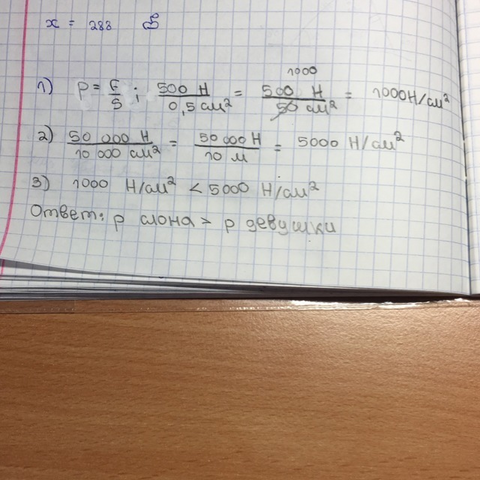 x = 288
1) p = F/S ; 500 Н / 0,5 см² = 500 Н / 50 см² 1000 = 1000 Н/см²
2) 50 000 Н / 10 000 см² = 50 000 Н / 10 м = 5000 Н/см²
3) 1000 Н/см² < 5000 Н/см²
Ответ: p слона > p девушки